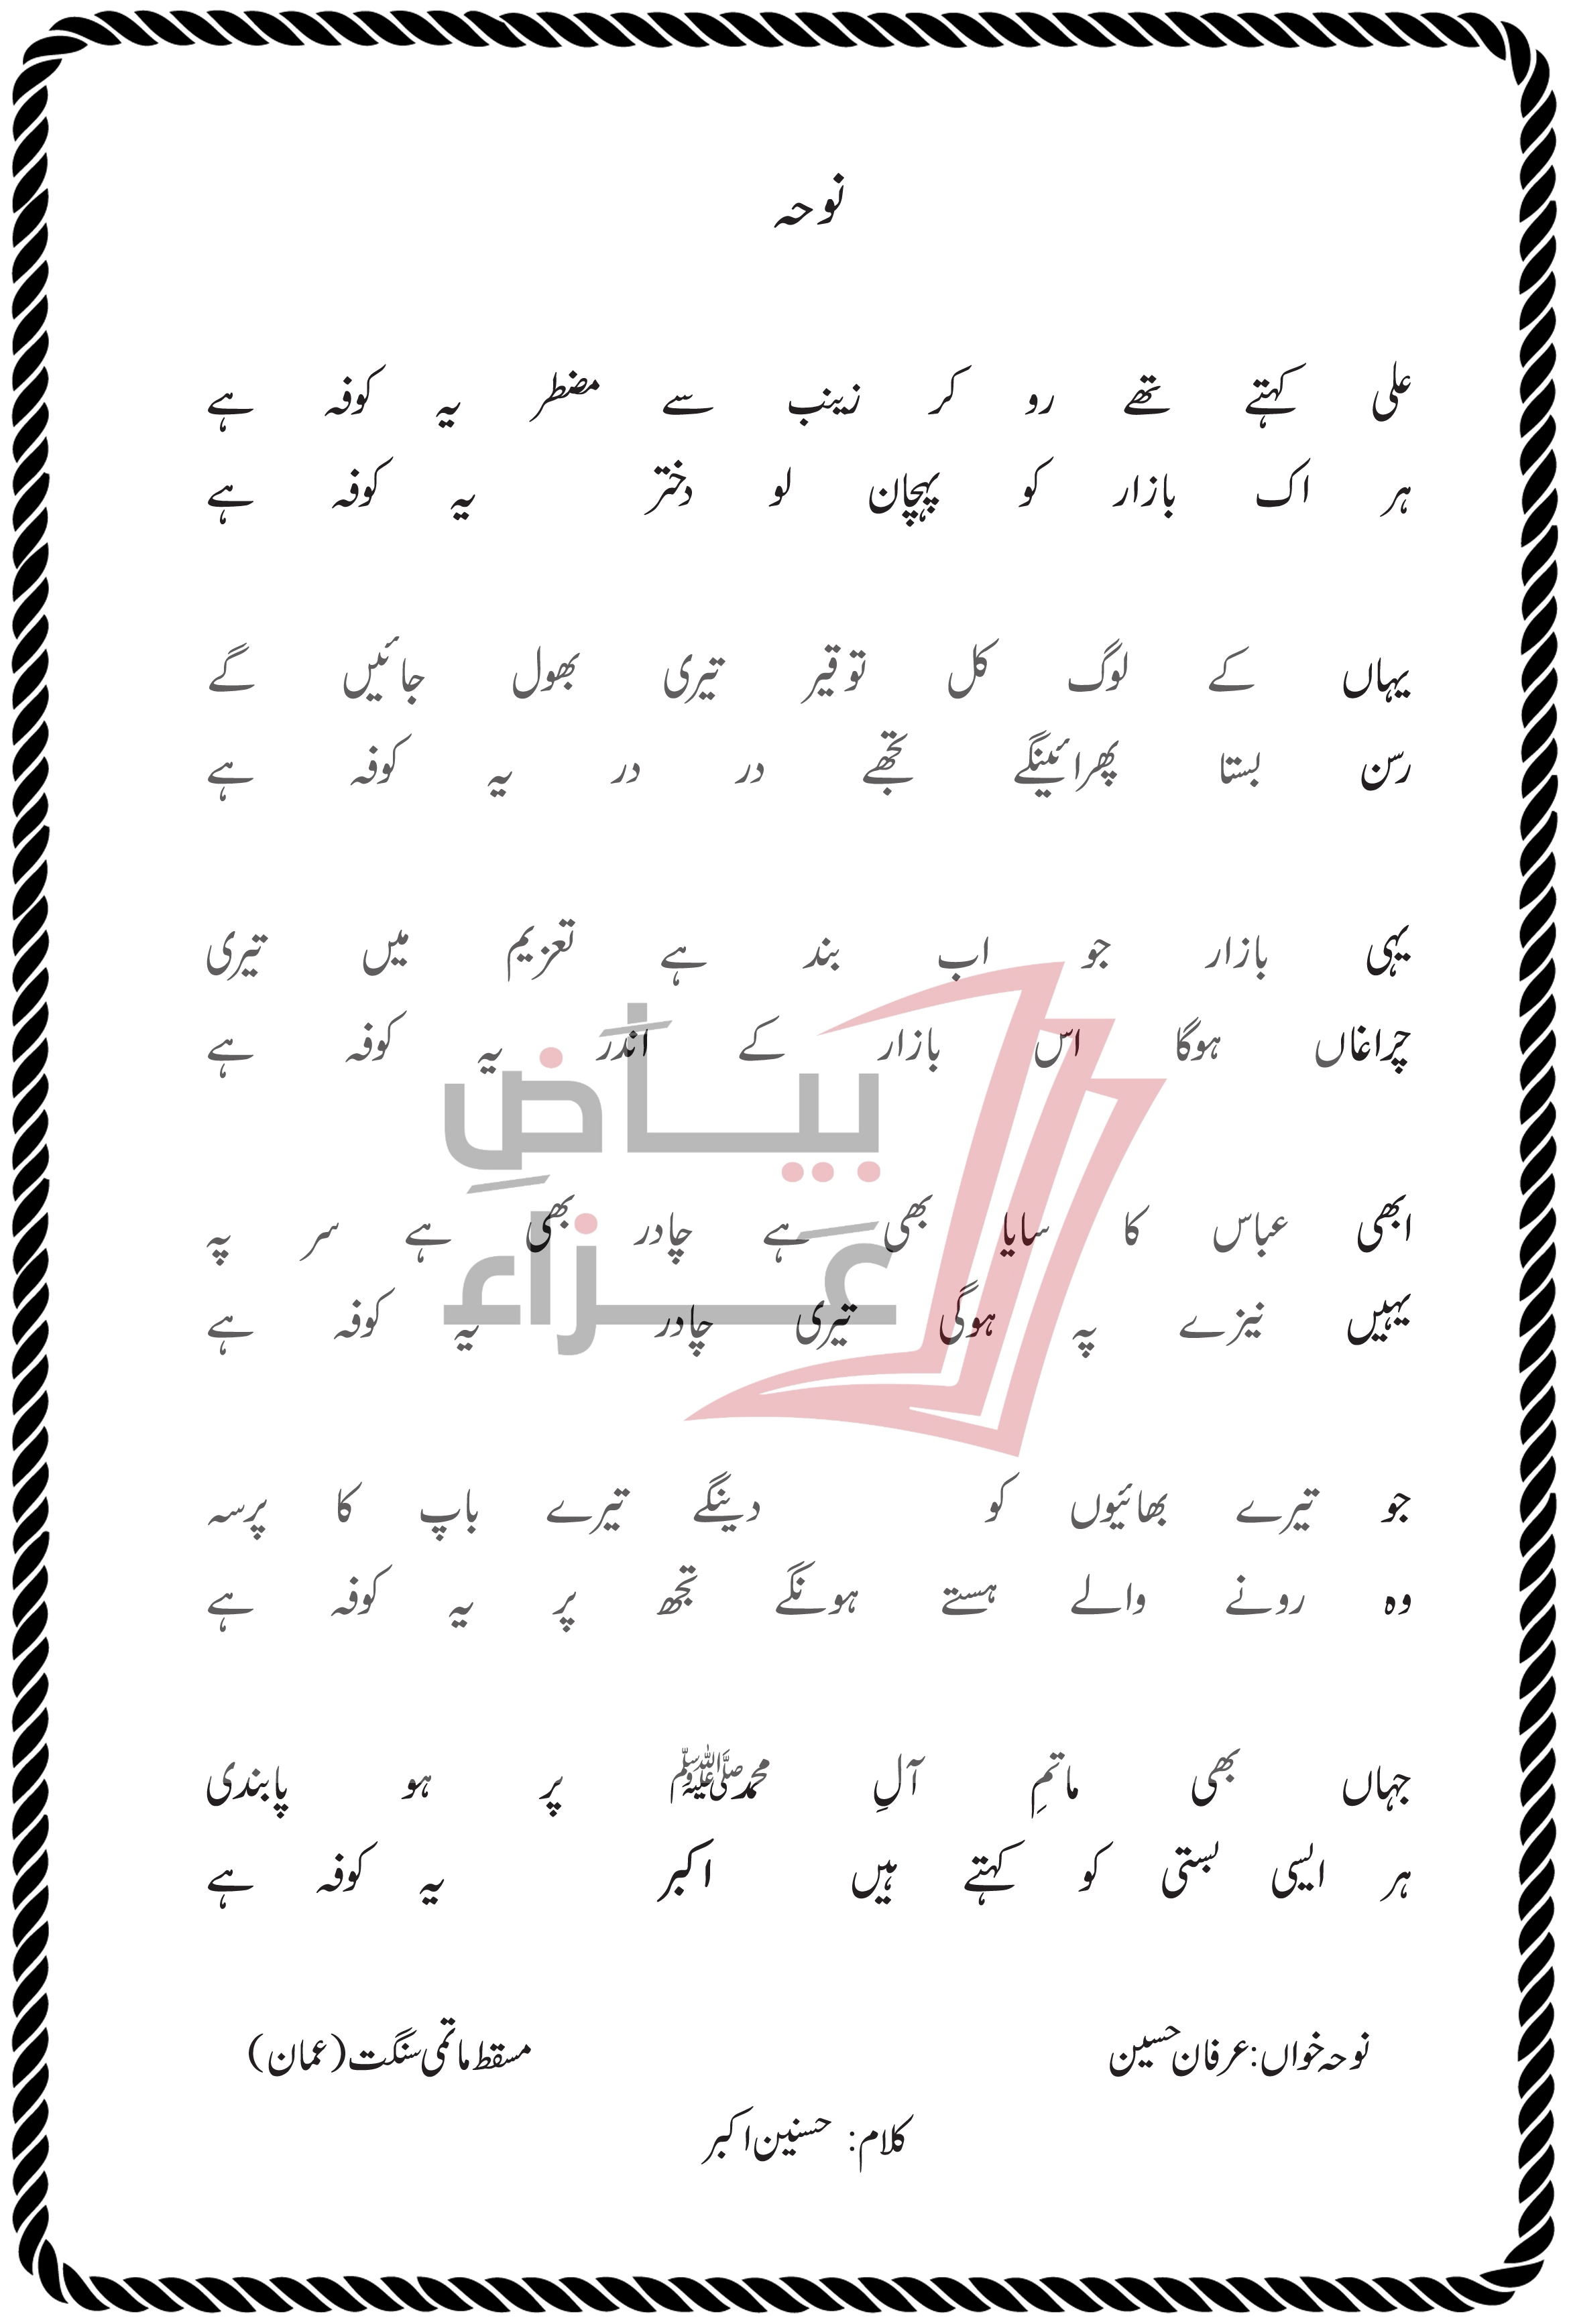 نوحہ
علی کہتے تھے رو کر زینب سے مضطر یہ کوفہ ہے
ہر اک بازار کو پہچان لو دختر یہ کوفہ ہے
یہاں کے لوگ کل توقیر تیری بھول جائیں گے
رسن بستا پھرائینگے تجھے در در یہ کوفہ ہے
یہی بازار جو اب بند ہے تعزیم میں تیری
چراغاں ہوگا اس بازار کے اندر یہ کوفہ ہے
ابھی عباس کا سایا بھی ہے چادر بھی ہے سر پہ
یہیں نیزے پہ ہوگی تیری چادر یہ کوفہ ہے
جو تیرے بھائیوں کو دینگے تیرے باپ کا پرسہ
وہ رونے والے ہستے ہونگے تجھ پر یہ کوفہ ہے
جہاں بھی ماتمِ آلِ محمدﷺ پر ہو پابندی
ہر ایسی بستی کو کہتے ہیں اکبر یہ کوفہ ہے
نوحہ خواں: عرفان حسین مسقط ماتمی سنگت (عمان)
کلام: حسنین اکبر
بیاضِ
عَزاء